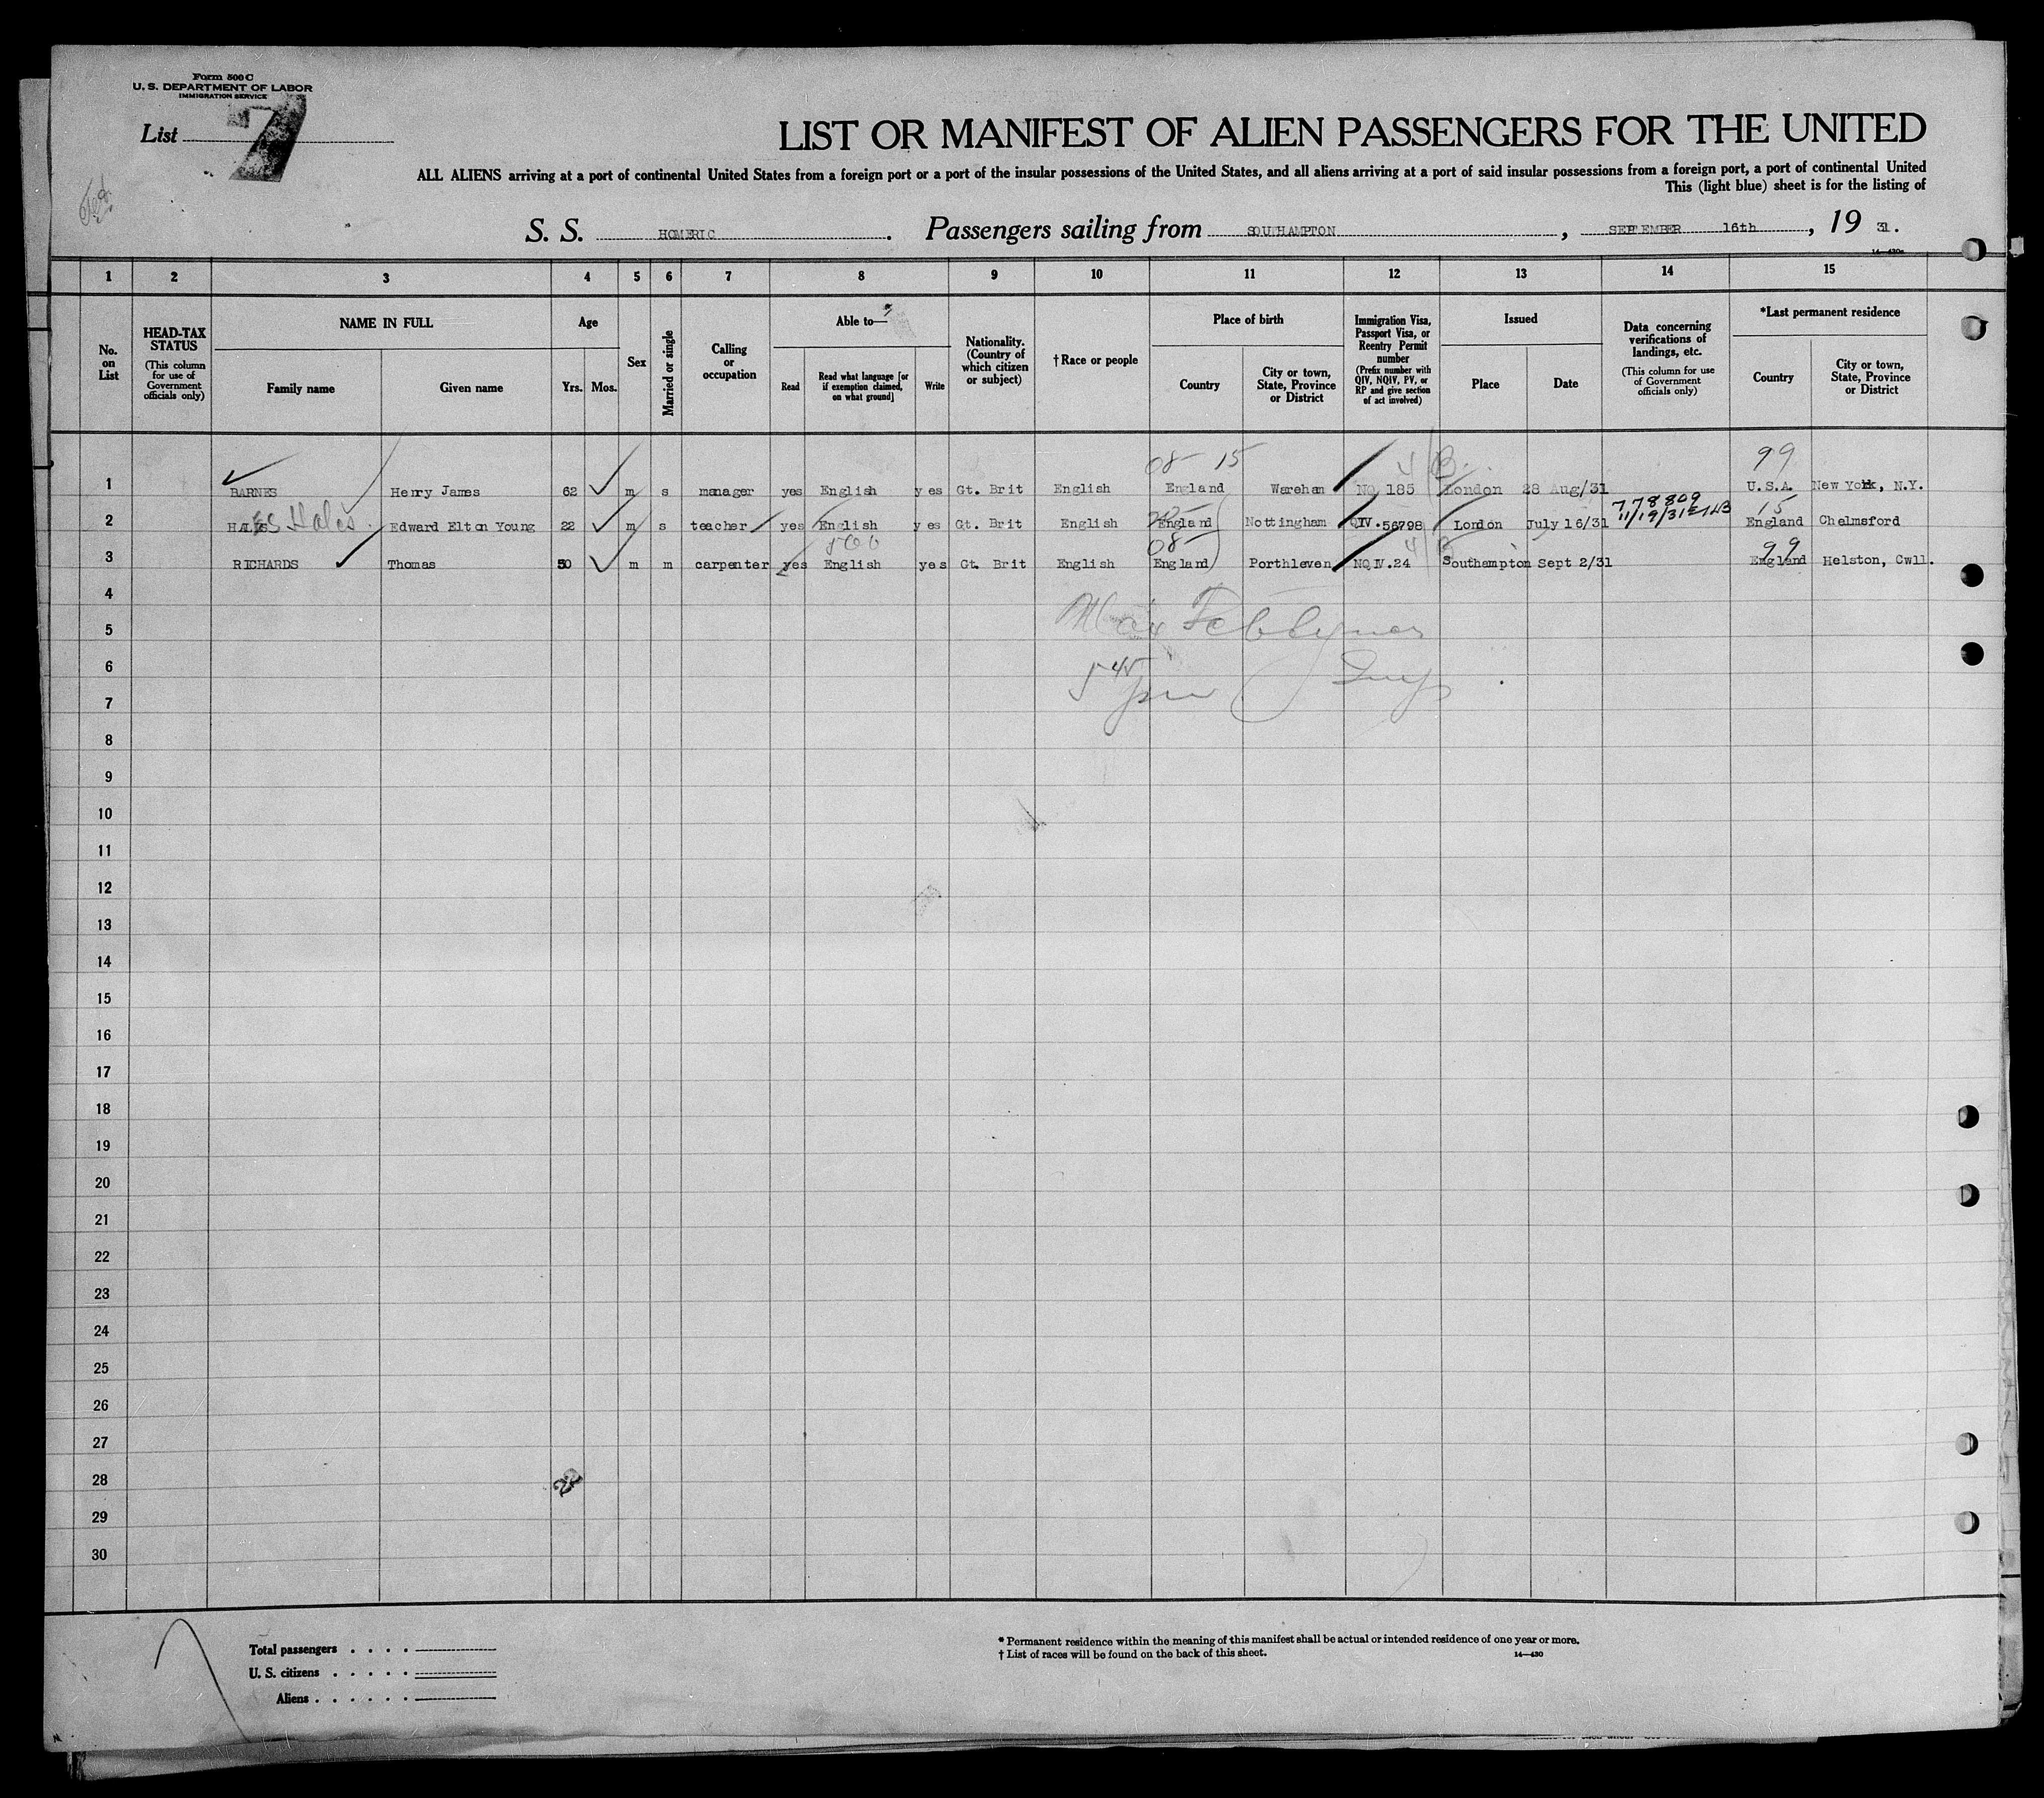 Form 500 C
U. S. DEPARTMENT OF LABOR
IMMIGRATION SERVICE
List 7
LIST OR MANIFEST OF ALIEN PASSENGERS FOR THE UNITED
ALL ALIENS arriving at a port of continental United States from a foreign port or a port of the insular possessions of the United States, and all aliens arriving at a port of said insular possessions from a foreign port, a port of continental United
This (light blue) sheet is for the listing of
S. S. HOMERIC. Passengers sailing from SOUTHAMPTON, SEPTEMBER 16th, 19 31.
14—430a
1 2 3 4 5 6 7 8 9 10 11 12 13 14 15
No. on List
HEAD-TAX STATUS
(This column for use of Government officials only)
NAME IN FULL
Family name
Given name
Age
Yrs. Mos.
Sex
Married or single
Calling or occupation
Able to—
Read
Read what language [or if exemption claimed, on what ground]
Write
Nationality. (Country of which citizen or subject)
† Race or people
Place of birth
Country
City or town, State, Province or District
Immigration Visa, Passport Visa, or Reentry Permit number
(Prefix number with QIV, NQIV, PV, or RP and give section of act involved)
Issued
Place
Date
Data concerning verifications of landings, etc.
(This column for use of Government officials only)
*Last permanent residence
Country
City or town, State, Province or District
08 15 4 B. 99
1 BARNES Henry James 62 m s manager yes English yes Gt. Brit English England Wareham NQ 185 London 28 Aug/31 U.S.A. New York, N.Y.
7 78809 15
11/19/31
2 Hales Edward Elton Young 22 m s teacher yes English yes Gt. Brit English England Nottingham QIV.56798 London July 16/31 England Chelmsford
500 08 4 B 99
3 RICHARDS Thomas 50 m m carpenter yes English yes Gt. Brit English England Porthleven NQIV.24 Southampton Sept 2/31 England Helston, Cwll.
4
5
6
7
8
9
10
11
12
13
14
15
16
17
18
19
20
21
22
23
24
25
26
27
28
29
30
Total passengers . . . .
U. S. citizens . . . . .
Aliens . . . . . .
* Permanent residence within the meaning of this manifest shall be actual or intended residence of one year or more.
† List of races will be found on the back of this sheet.
14—430